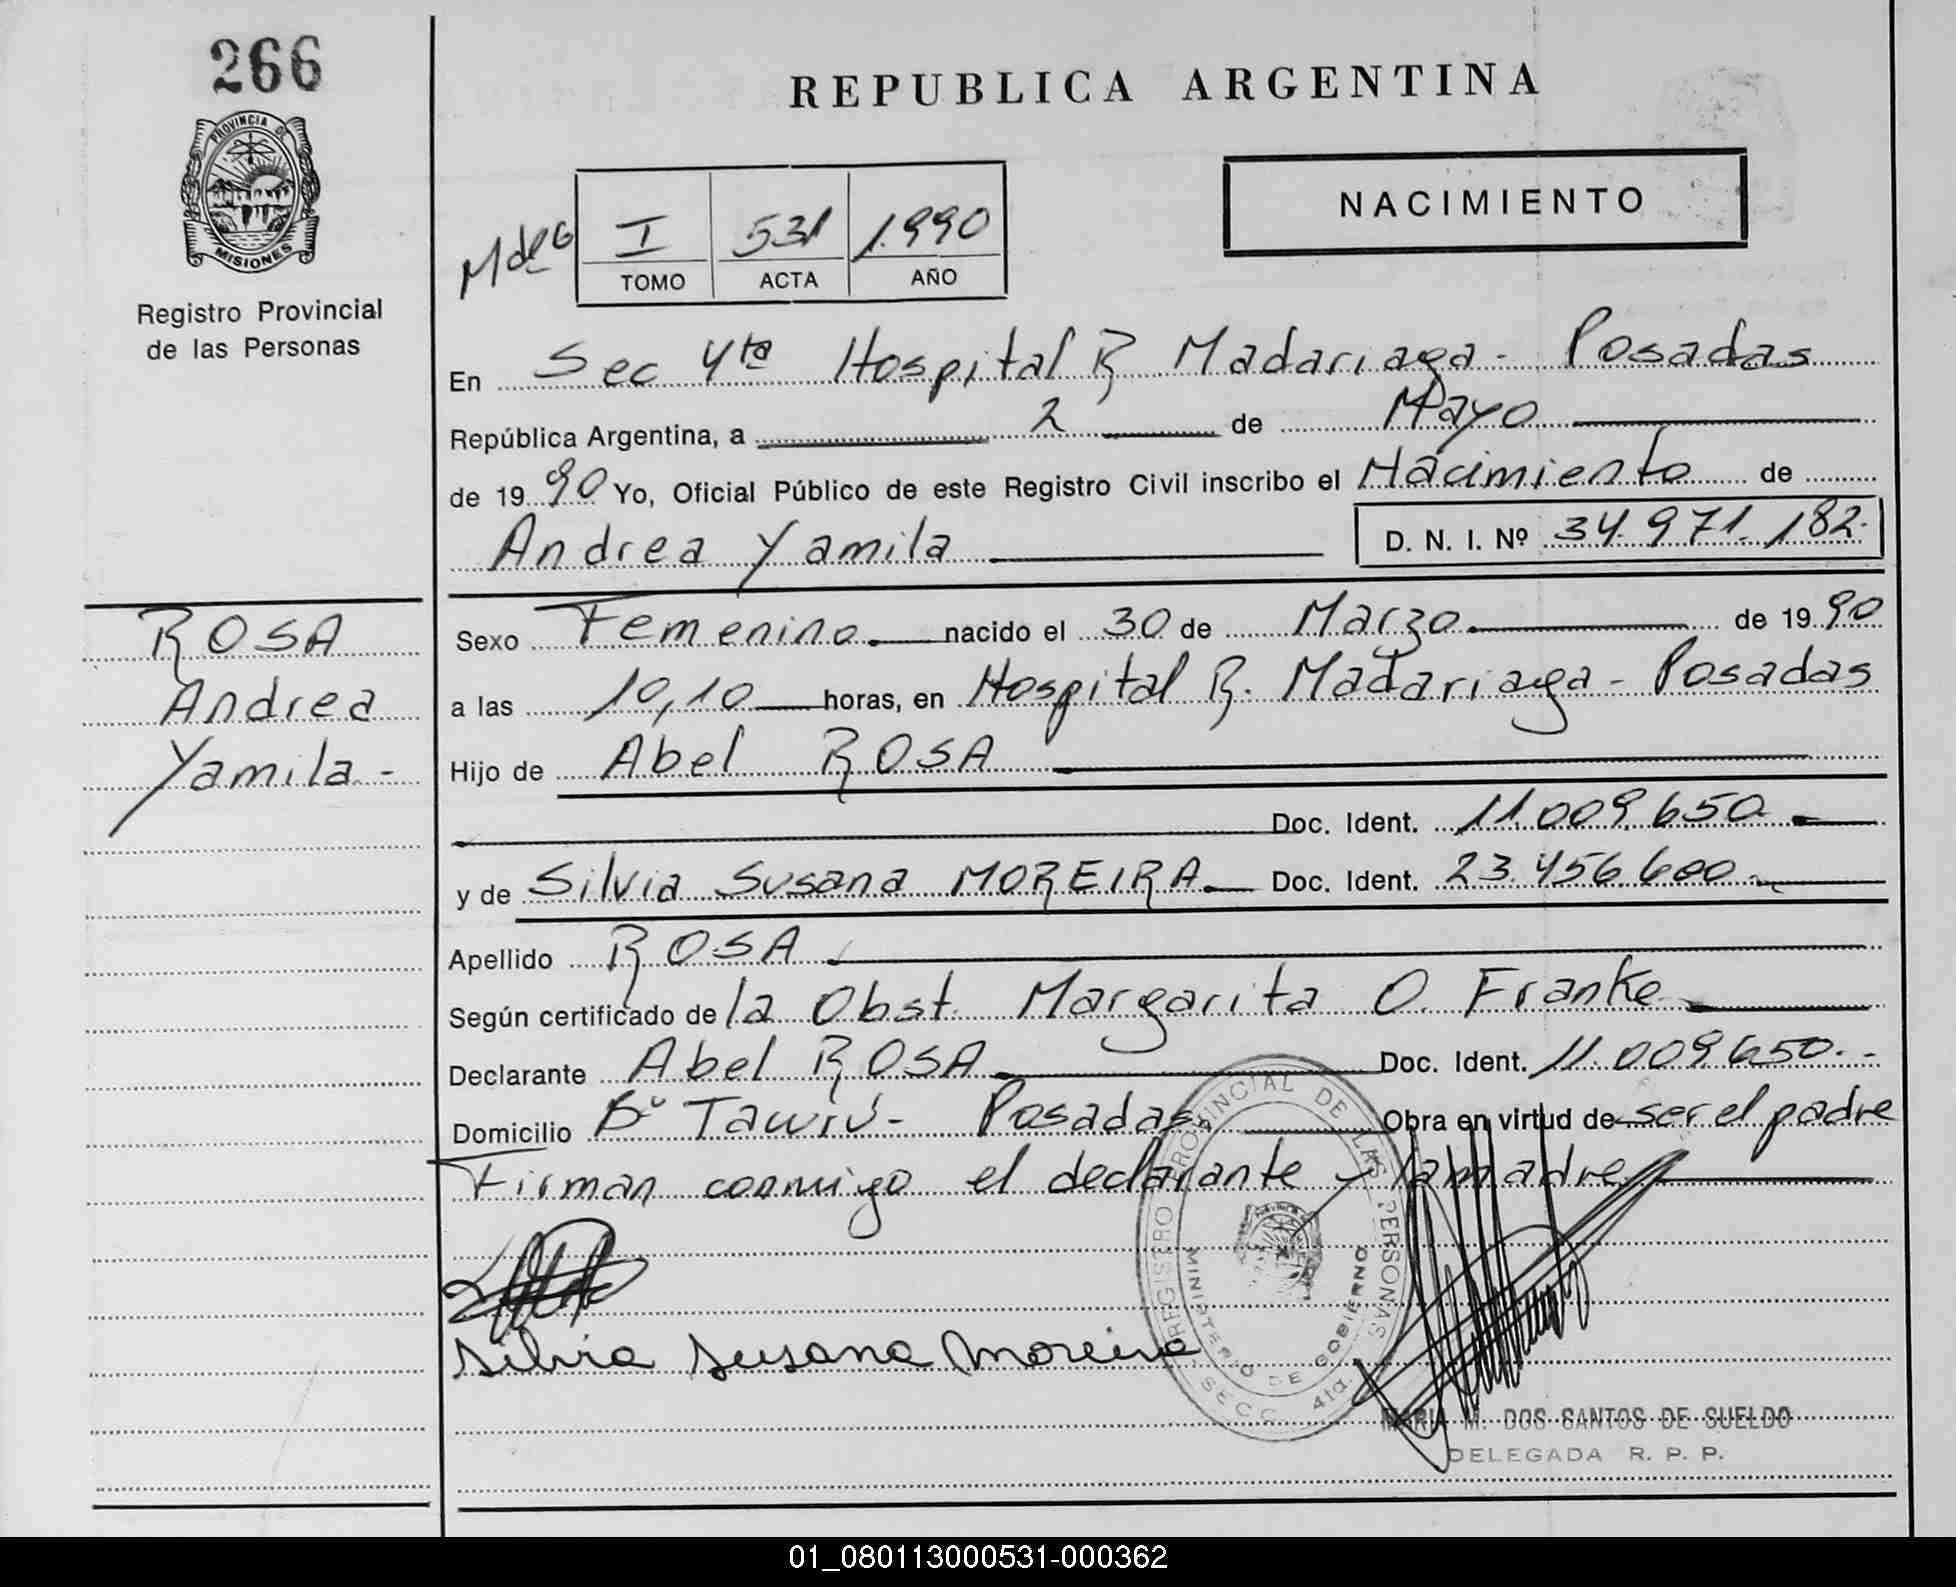 266
REPUBLICA ARGENTINA
PROVINCIA DE
MISIONES
Registro Provincial
de las Personas
NACIMIENTO
I 531 1.990
TOMO ACTA AÑO
En Sec 4ta Hospital R Madariaga - Posadas
República Argentina, a 2 de Mayo
de 1990 Yo, Oficial Público de este Registro Civil inscribo el Nacimiento de
Andrea Yamila D. N. I. Nº 34.971.182.
ROSA
Andrea
Yamila -
Sexo Femenino. nacido el 30 de Marzo. de 1990
a las 10,10 horas, en Hospital R. Madariaga - Posadas
Hijo de Abel ROSA
Doc. Ident. 11.009.650.
y de Silvia Susana MOREIRA. Doc. Ident. 23.456.600.
Apellido ROSA.
Según certificado de la Obst. Margarita O. Franke
Declarante Abel ROSA Doc. Ident. 11.009.650.-
Domicilio Bº Posadas Obra en virtud de ser el padre
Firman conmigo el declarante y la madre
Silvia Susana Moreira
REGISTRO PROVINCIAL DE LAS PERSONAS
MINISTERIO DE GOBIERNO
SECC. 4ta.
MARIA M. DOS SANTOS DE SUELDO
DELEGADA R. P. P.
01_080113000531-000362